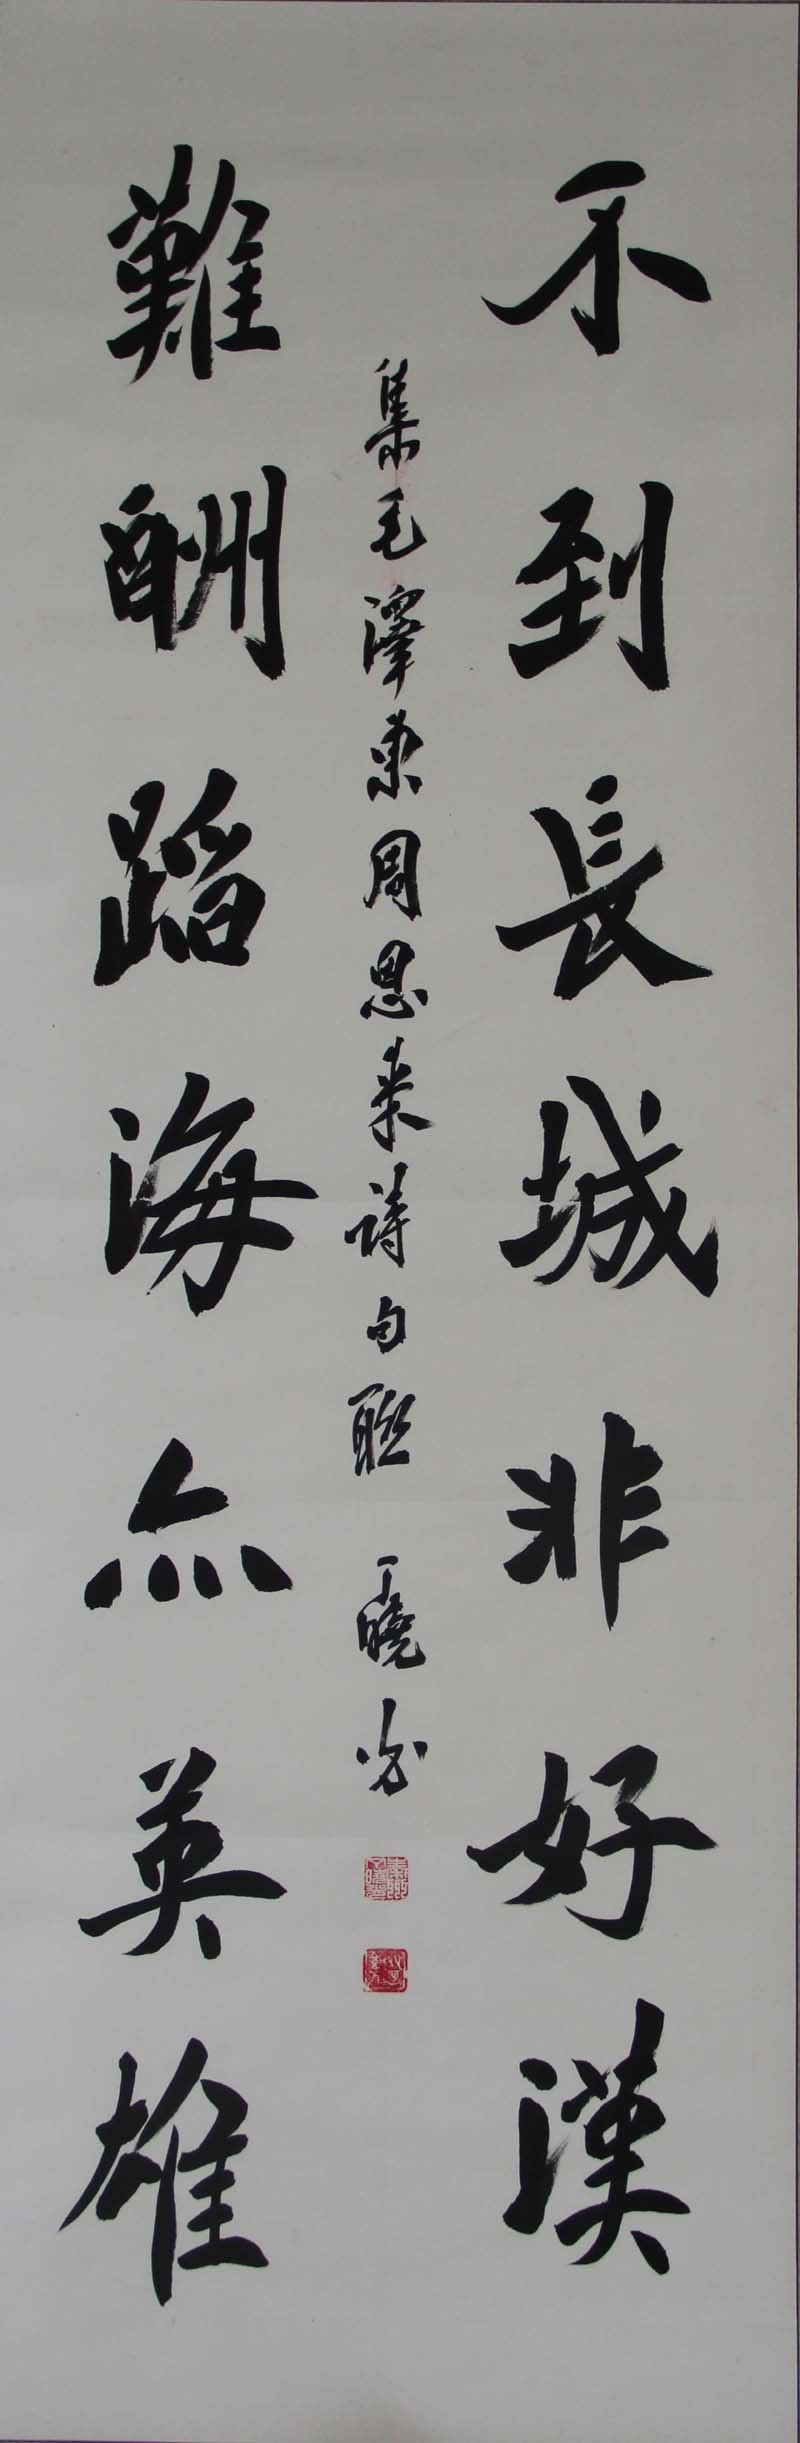 不到長城非好漢
集毛澤東周恩来詩句聯 丁曉
難酬蹈海亦英雄